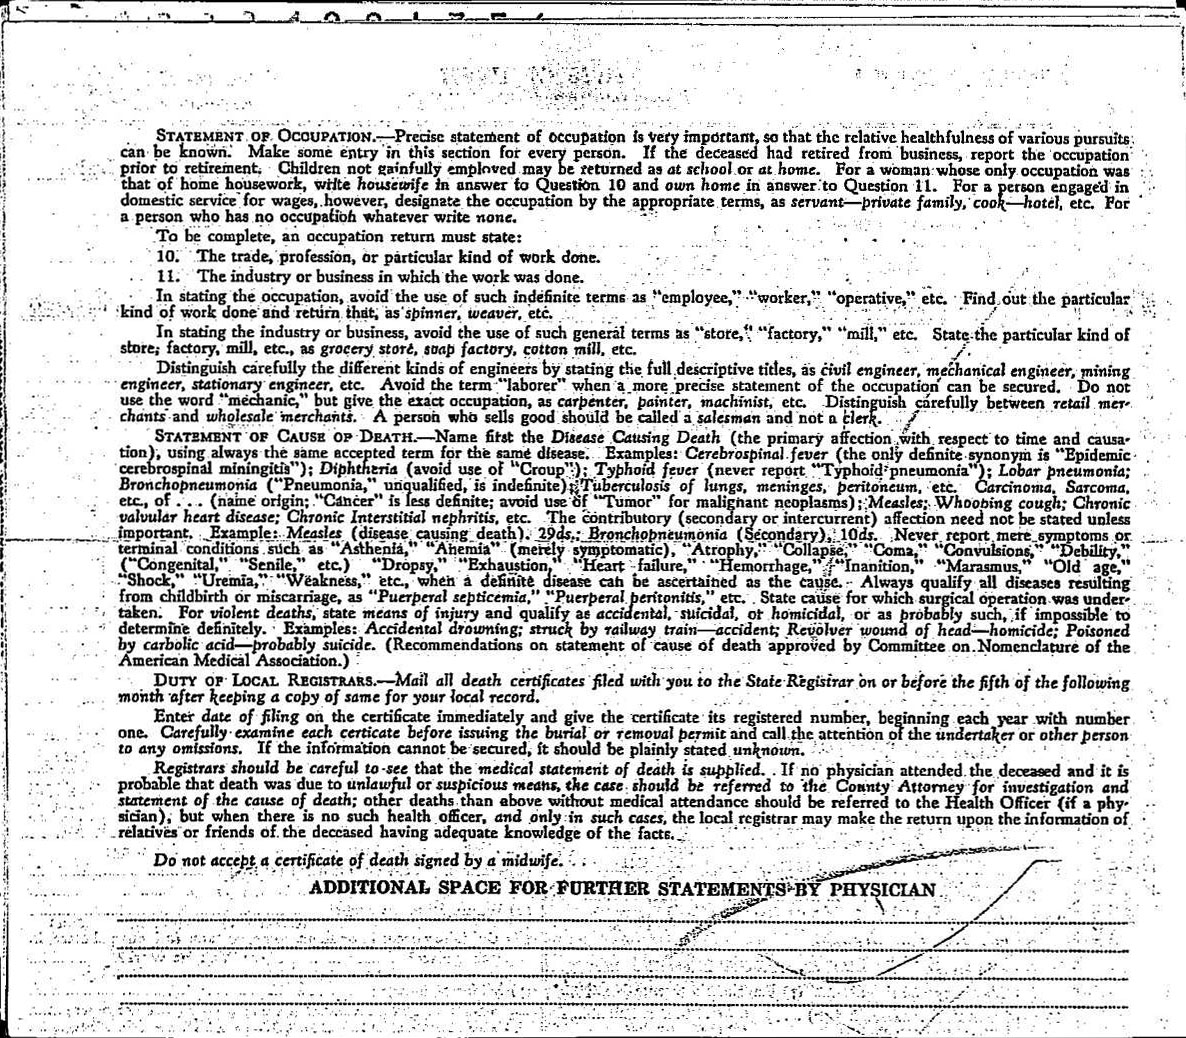 STATEMENT OF OCCUPATION.—Precise statement of occupation is very important, so that the relative healthfulness of various pursuits
can be known. Make some entry in this section for every person. If the deceased had retired from business, report the occupation
prior to retirement. Children not gainfully employed may be returned as at school or at home. For a woman whose only occupation was
that of home housework, write housewife in answer to Question 10 and own home in answer to Question 11. For a person engaged in
domestic service for wages, however, designate the occupation by the appropriate terms, as servant—private family, cook—hotel, etc. For
a person who has no occupation whatever write none.
To be complete, an occupation return must state:
10. The trade, profession, or particular kind of work done.
11. The industry or business in which the work was done.
In stating the occupation, avoid the use of such indefinite terms as "employee," "worker," "operative," etc. Find out the particular
kind of work done and return that, as spinner, weaver, etc.
In stating the industry or business, avoid the use of such general terms as "store," "factory," "mill," etc. State the particular kind of
store, factory, mill, etc., as grocery store, soap factory, cotton mill, etc.
Distinguish carefully the different kinds of engineers by stating the full descriptive titles, as civil engineer, mechanical engineer, mining
engineer, stationary engineer, etc. Avoid the term "laborer" when a more precise statement of the occupation can be secured. Do not
use the word "mechanic," but give the exact occupation, as carpenter, painter, machinist, etc. Distinguish carefully between retail mer-
chants and wholesale merchants. A person who sells good should be called a salesman and not a clerk.
STATEMENT OF CAUSE OF DEATH.—Name first the Disease Causing Death (the primary affection with respect to time and causa-
tion), using always the same accepted term for the same disease. Examples: Cerebrospinal fever (the only definite synonym is "Epidemic
cerebrospinal miningitis"); Diphtheria (avoid use of "Croup"); Typhoid fever (never report "Typhoid pneumonia"); Lobar pneumonia;
Bronchopneumonia ("Pneumonia," unqualified, is indefinite); Tuberculosis of lungs, meninges, peritoneum, etc. Carcinoma, Sarcoma,
etc., of . . . (name origin; "Cancer" is less definite; avoid use of "Tumor" for malignant neoplasms); Measles; Whooping cough; Chronic
valvular heart disease; Chronic Interstitial nephritis, etc. The contributory (secondary or intercurrent) affection need not be stated unless
important. Example: Measles (disease causing death), 29ds.; Bronchopneumonia (Secondary), 10ds. Never report mere symptoms or
terminal conditions such as "Asthenia," "Anemia" (merely symptomatic), "Atrophy," "Collapse," "Coma," "Convulsions," "Debility,"
("Congenital," "Senile," etc.) "Dropsy," "Exhaustion," "Heart failure," "Hemorrhage," "Inanition," "Marasmus," "Old age,"
"Shock," "Uremia," "Weakness," etc., when a definite disease can be ascertained as the cause. Always qualify all diseases resulting
from childbirth or miscarriage, as "Puerperal septicemia," "Puerperal peritonitis," etc. State cause for which surgical operation was under-
taken. For violent deaths, state means of injury and qualify as accidental, suicidal, or homicidal, or as probably such, if impossible to
determine definitely. Examples: Accidental drowning; struck by railway train—accident; Revolver wound of head—homicide; Poisoned
by carbolic acid—probably suicide. (Recommendations on statement of cause of death approved by Committee on Nomenclature of the
American Medical Association.)
DUTY OF LOCAL REGISTRARS.—Mail all death certificates filed with you to the State Registrar on or before the fifth of the following
month after keeping a copy of same for your local record.
Enter date of filing on the certificate immediately and give the certificate its registered number, beginning each year with number
one. Carefully examine each certicate before issuing the burial or removal permit and call the attention of the undertaker or other person
to any omissions. If the information cannot be secured, it should be plainly stated unknown.
Registrars should be careful to see that the medical statement of death is supplied. If no physician attended the deceased and it is
probable that death was due to unlawful or suspicious means, the case should be referred to the County Attorney for investigation and
statement of the cause of death; other deaths than above without medical attendance should be referred to the Health Officer (if a phy-
sician), but when there is no such health officer, and only in such cases, the local registrar may make the return upon the information of
relatives or friends of the deceased having adequate knowledge of the facts.
Do not accept a certificate of death signed by a midwife.
ADDITIONAL SPACE FOR FURTHER STATEMENTS BY PHYSICIAN